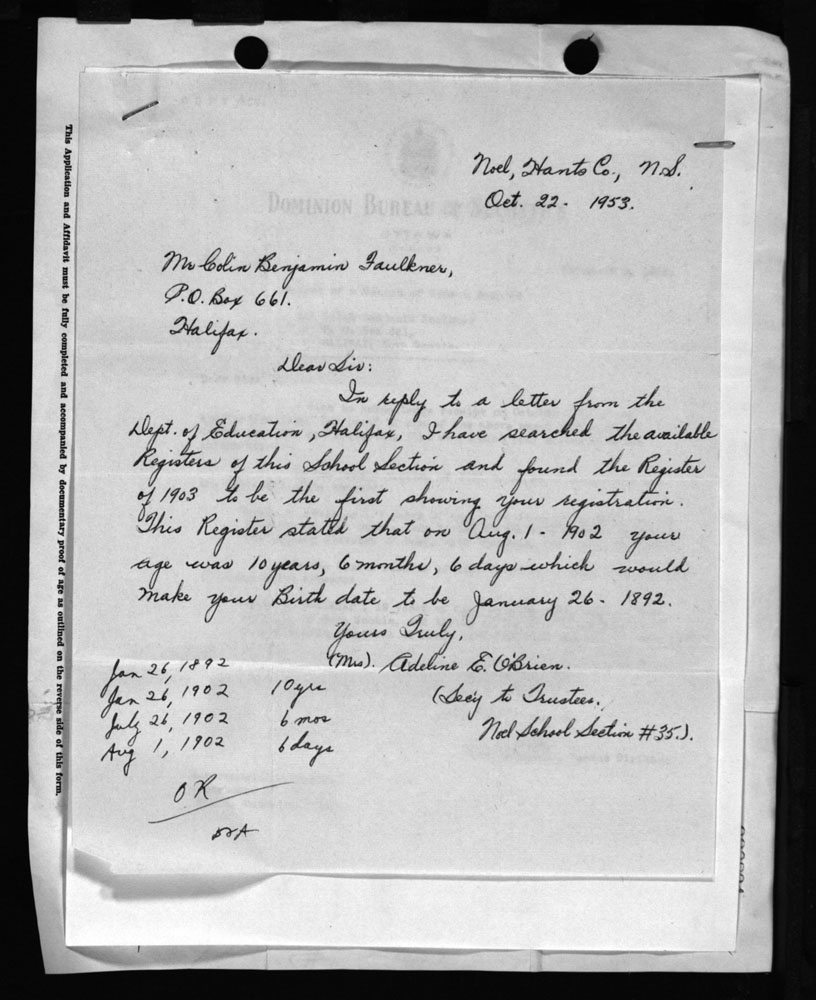 This Application and Affidavit must be fully completed and accompanied by documentary proof of age as outlined on the reverse side of this form.
DOMINION BUREAU OF
OTTAWA
Noel, Hants Co., N.S.
Oct. 22 - 1953.
Mr Colin Benjamin Faulkner,
P.O. Box 661.
Halifax.
Dear Sir:
In reply to a letter from the
Dept. of Education, Halifax, I have searched the available
Registers of this School Section and found the Register
of 1903 to be the first showing your registration.
This Register stated that on Aug. 1 - 1902 your
age was 10 years, 6 months, 6 days which would
make your Birth date to be January 26 - 1892.
Yours Truly,
(Mrs). Adeline E. O'Brien.
(Secy to Trustees.
Noel School Section #35.).
Jan 26, 1892
Jan 26, 1902 10 yrs
July 26, 1902 6 mos
Aug 1, 1902 6 days
OK